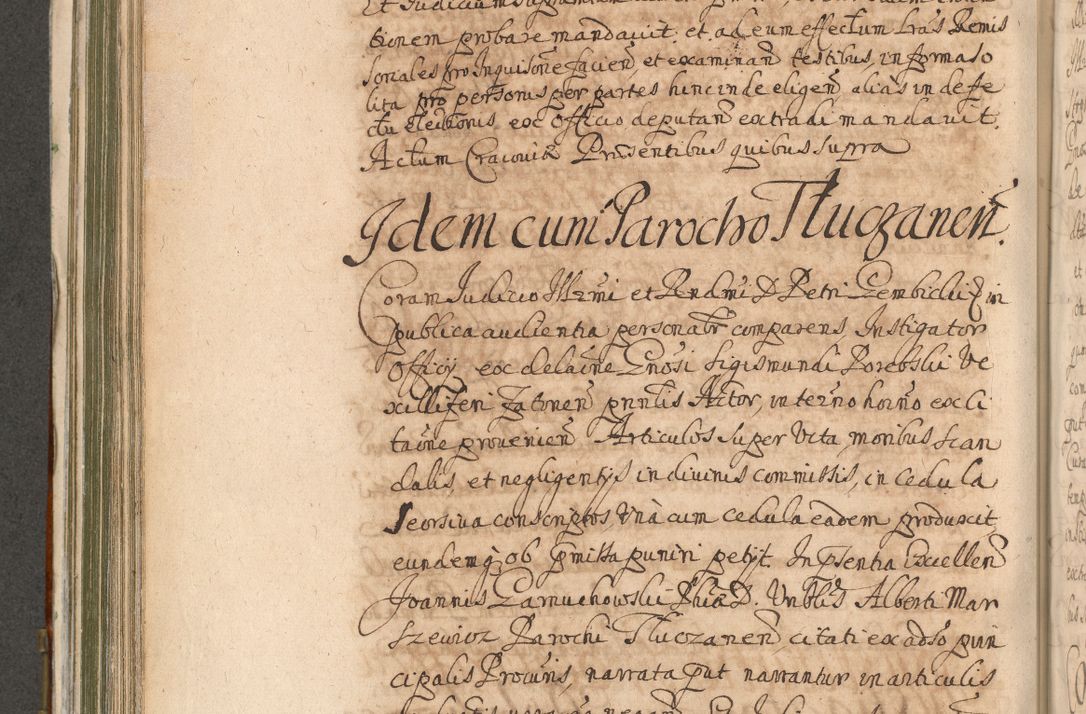 tionem probare mandavit et ad eum effectum Lrás Remis
soriales pro Inquisone facien, et examinan testibus, in forma so
lita pro personis per partes hinc inde eligen alias in defe
ctu electionis ex Officio deputan extradi mandavit.
Actum Cracoviæ Præsentibus quibus supra
Idem cum Parocho Tłuczanen.
Coram Judicio Illrmi et Rendmi D Petri Gembicki in
publica audientia personalr comparens, Instigator
Officÿ ex delatne Gnosi Sigismundi Porębski Ve
xilliferi Zatoren pnntis Actor, in terno hoirno ex ci
taone provenien Articulos super vita, moribus scan
dalis, et negligentÿs in divinis commissis, in cedula
seorsiva conscriptos, Una cum cedula eadem produxit
eundemq ob pmissa puniri petÿt. In pÿsentia Excellen
Joannis Zamuchowski Phiæ D. Vnblis Alberti Mar
szewicz Parochi Tłuczanen citati ex adso prin
cipalis Procuris, narrata put narrantur in articulis